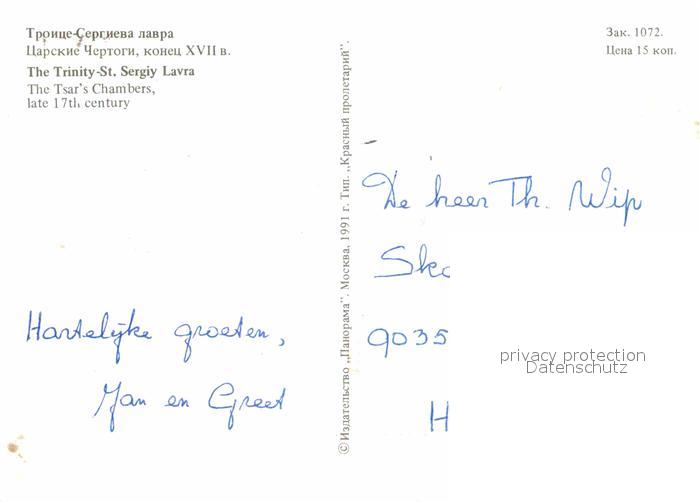 Троице-Сергиева лавра
Царские Чертоги, конец XVII в.
The Trinity-St. Sergiy Lavra
The Tsar's Chambers,
late 17th century
Hartelijke groeten,
Jan en Greet
© Издательство „Панорама". Москва, 1991 г. Тип. „Красный пролетарий".
Зак. 1072.
Цена 15 коп.
De heer Th. Wip
9035
privacy protection
Datenschutz
H